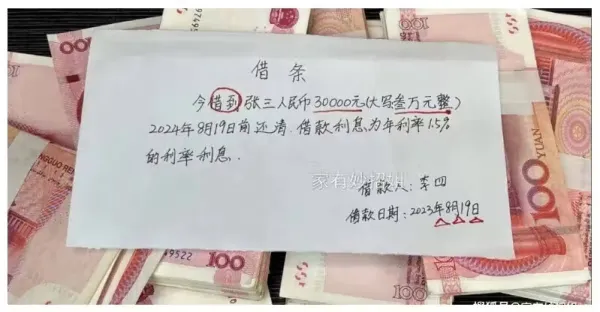 借条
今借到张三人民币30000元(大写叁万元整)
2024年8月19日前还清.借款利息为年利率1.5%
的利率利息.
家有妙招姐
借款人:李四
借款日期:2023年8月19日
100
YUAN
100
100
19522